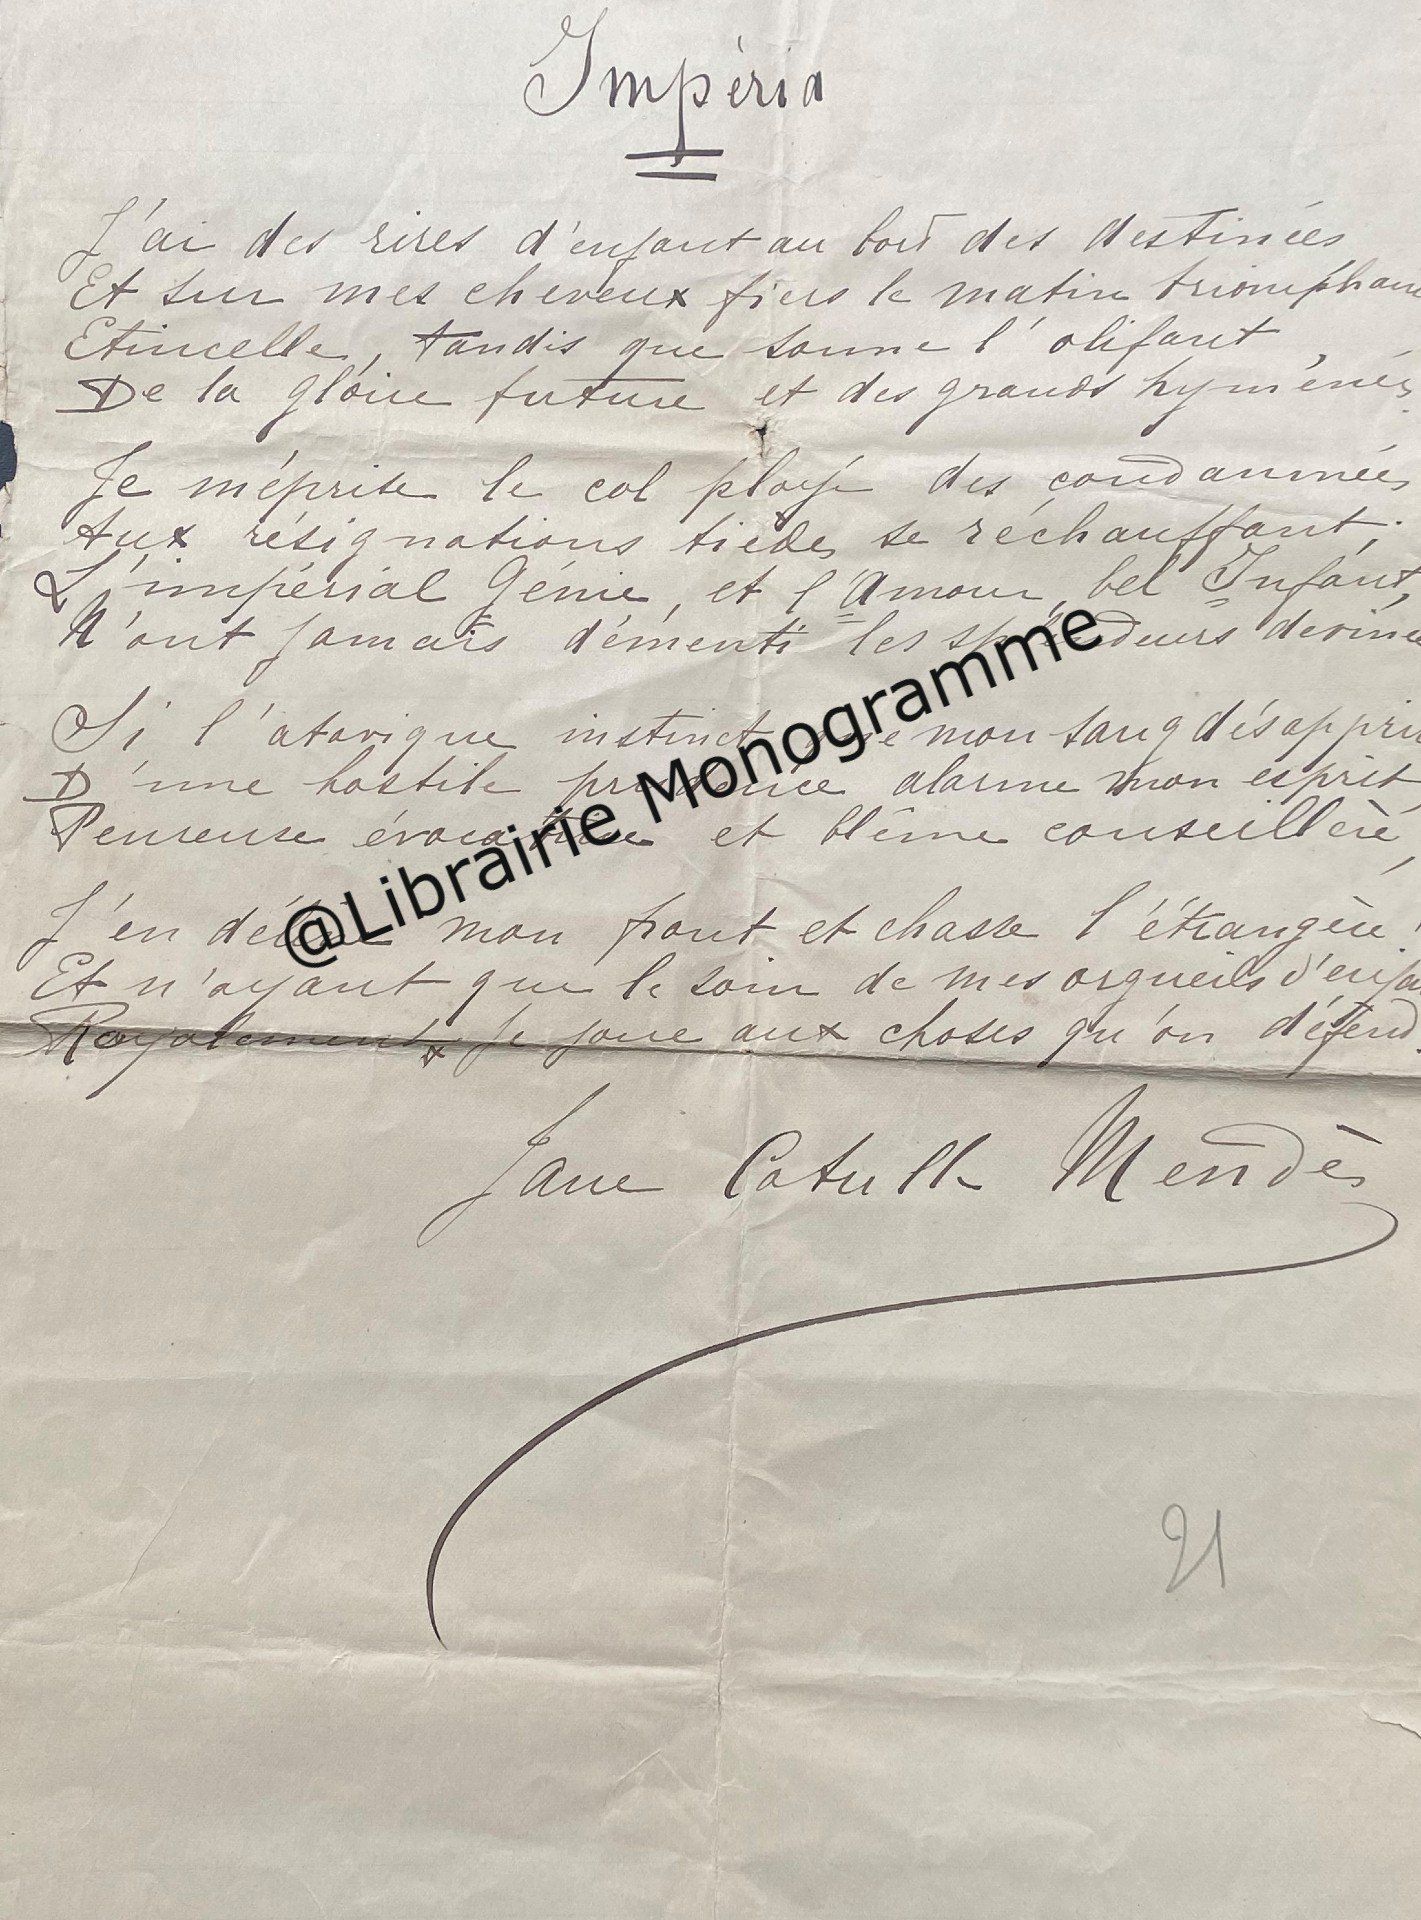 Impéria
J'ai des rires d'enfant au bord des destinées
Et sur mes cheveux fiers le matin triomphant
Etincelle, tandis que sonne l'olifant,
De la gloire future et des grands hyménées.
Je méprise le col ployé des condamnées
Aux résignations tièdes se réchauffant;
L'impérial Génie, et l'Amour, bel Infant,
N'ont jamais démenti les splendeurs devinées
Si l'atavique instinct que mon sang désapprit
D'une hostile prudence alarme mon esprit,
Peureuse évocatrice et blême conseillère,
J'en délivre mon front et chasse l'étrangère!
Et n'ayant que le soin de mes orgueils d'enfant
Royalement je joue aux choses qu'on défend.
Jane Catulle Mendès
21
@Librairie Monogramme